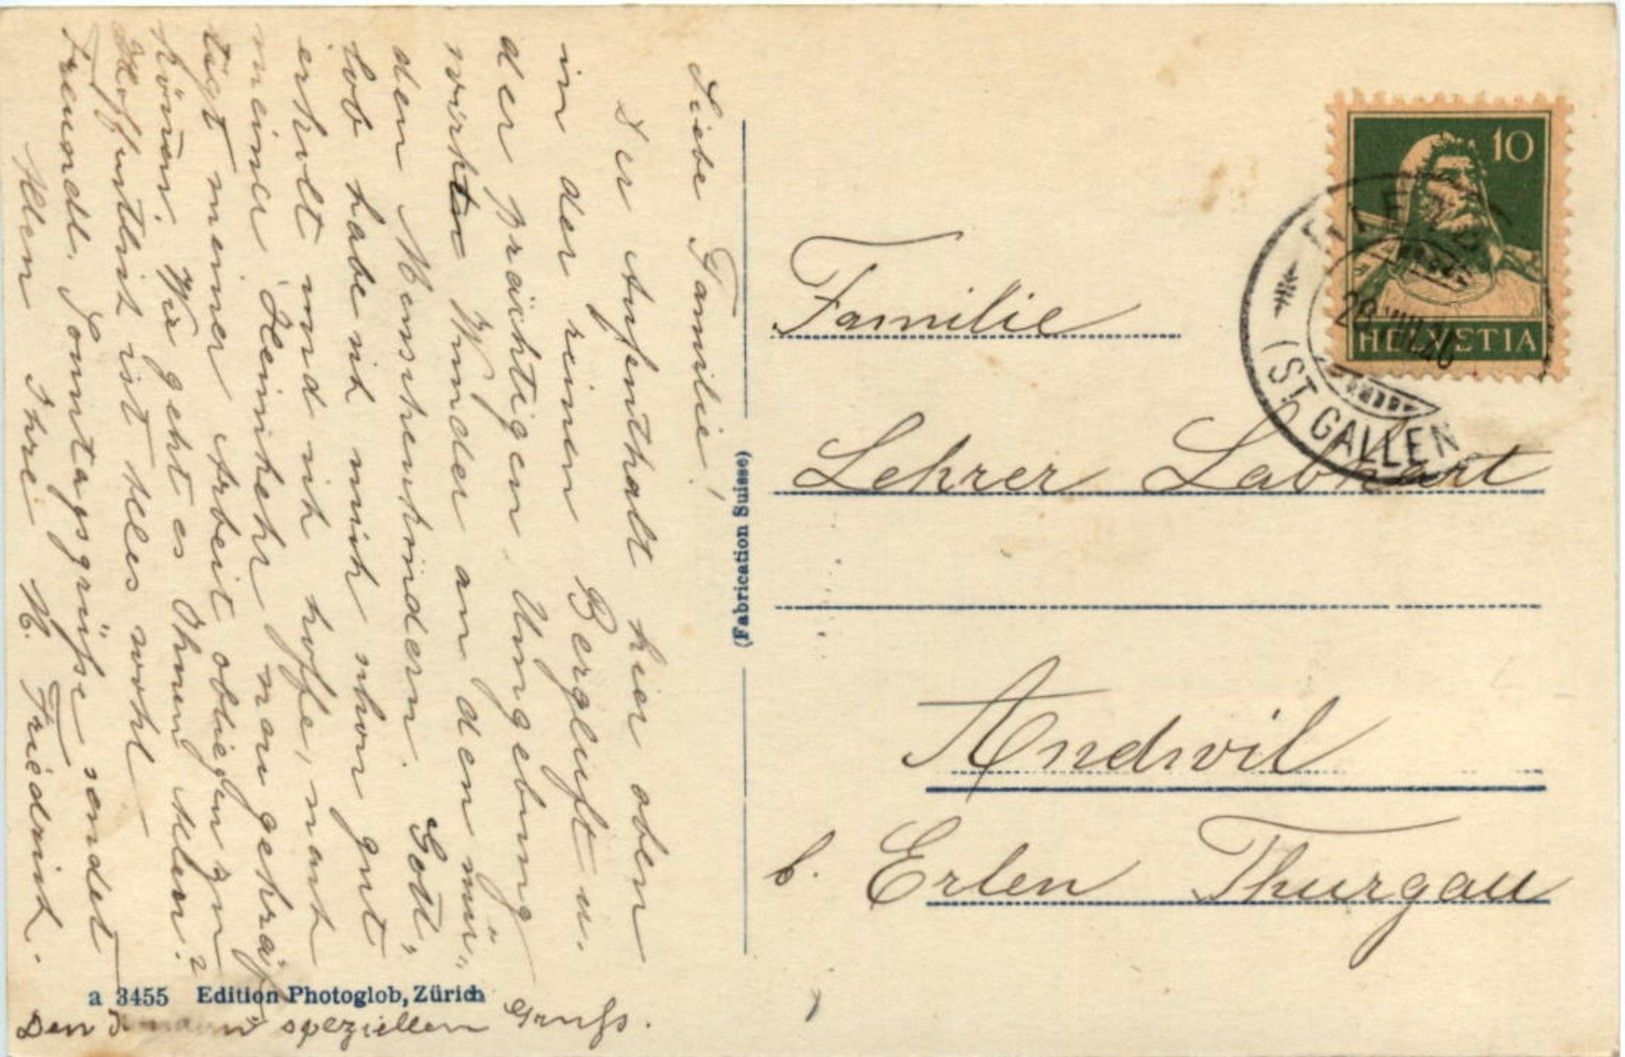 Liebe Familie!
Der Aufenthalt hier oben
in der reinen Bergluft u.
der prächtigen Umgebung
wirkten Wunder an den mü-
den Menschenkindern. Gott,
lob habe ich mich schon gut
erholt und ich hoffe, nach
meiner Heimkehr neu gekräf
tigt meiner Arbeit obliegen zu
können. Wie geht es Ihnen Allen?
Hoffentlich ist Alles wohl
Freundl. Sonntagsgrüße sendet
Allen Ihre M. Friedrich.
Den speziellen Gruss.
a 3455 Edition Photoglob, Zürich
(Fabrication Suisse)
10
HELVETIA
(ST. GALLEN
Familie
Lehrer Labhart
Andwil
b. Erlen Thurgau